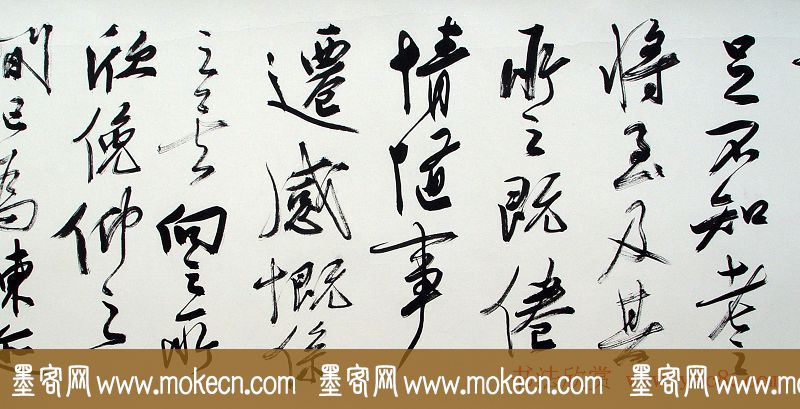 足不知老之
將至及其
所之既倦
情隨事
遷感慨係
之矣向之所
欣俛仰之
間已為陳迹
墨客网 www.mokecn.com 墨客网 www.mokecn.com 墨客网 www.mokecn.com
书法欣赏